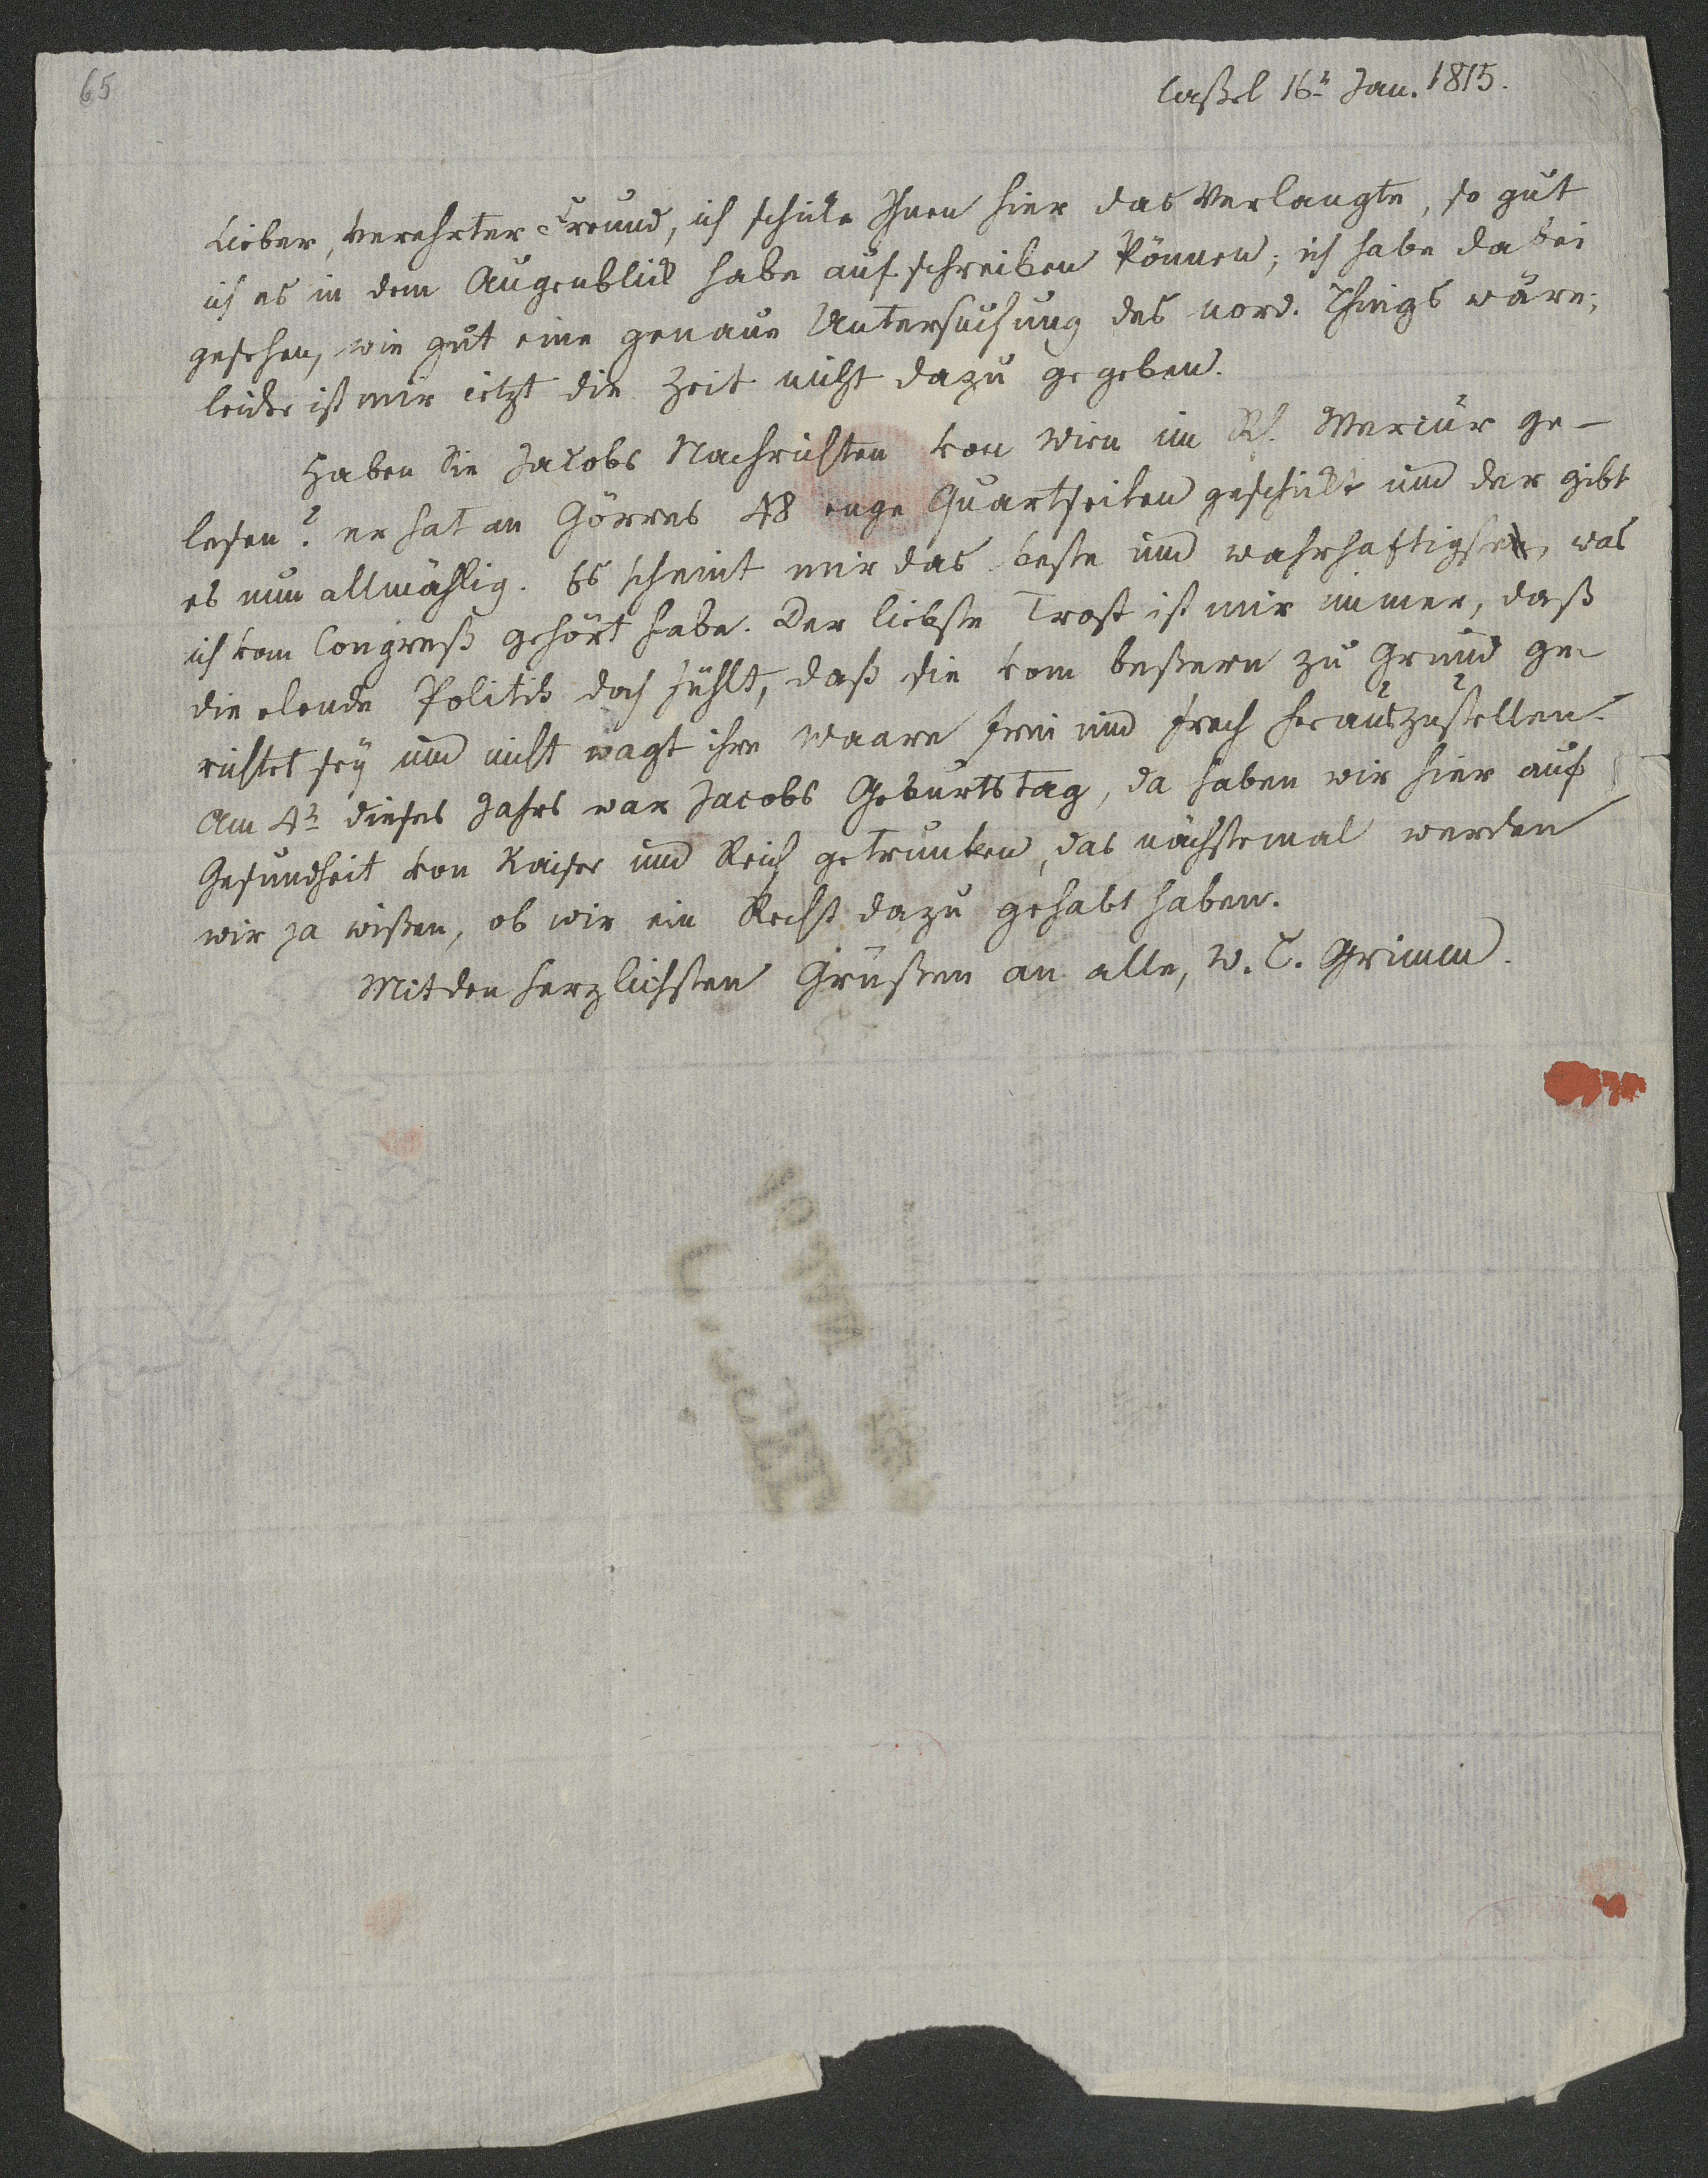 65
Caßel 16t Jan. 1815.
Lieber, verehrter Freund, ich schicke Ihnen hier das Verlangte, so gut
ich es in dem Augenblick habe aufschreiben können; ich habe dabei
gesehen, wie gut eine genaue Untersuchung des nord. Things wäre;
leider ist mir jetzt die Zeit nicht dazu gegeben.
Haben Sie Jacobs Nachrichten von Wien im Rh. Mercur ge-
lesen? er hat an Görres 48 enge Quartseiten geschickt und der gibt
es nun allmählig. Es scheint mir das beste und wahrhaftigste, was
ich vom Congreß gehört habe. Der liebste Trost ist mir immer, daß
die elende Politik doch fühlt, daß sie vom beßern zu Grund ge-
richtet sey und nicht wagt ihre Waare frei und frech herauszustellen.
Am 4t dieses Jahrs war Jacobs Geburtstag, da haben wir hier auf
Gesundheit von Kaiser und Reich getrunken, das nächstemal werden
wir ja wißen, ob wir ein Recht dazu gehabt haben.
Mit den herzlichsten Grüßen an alle, W. C. Grimm.